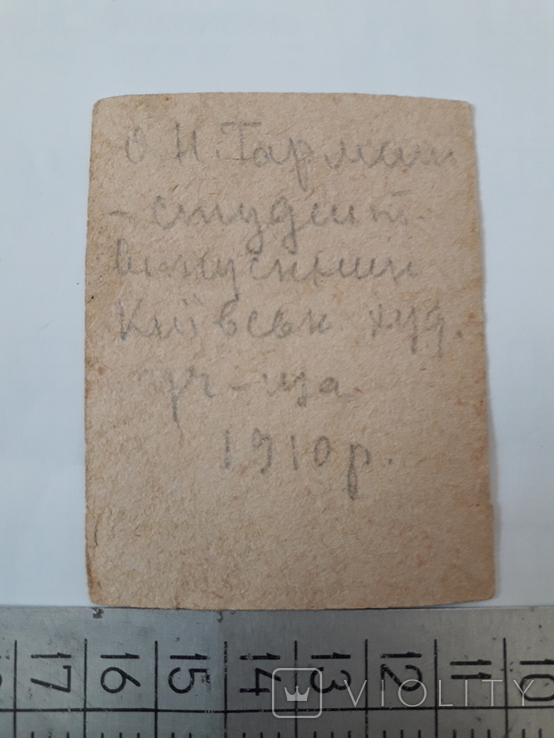 О Н. Гармаш
- студент
випускник
Київськ худ.
уч-ща
1910р.
17 16 15 14 13 12 11 10
VIOLITY